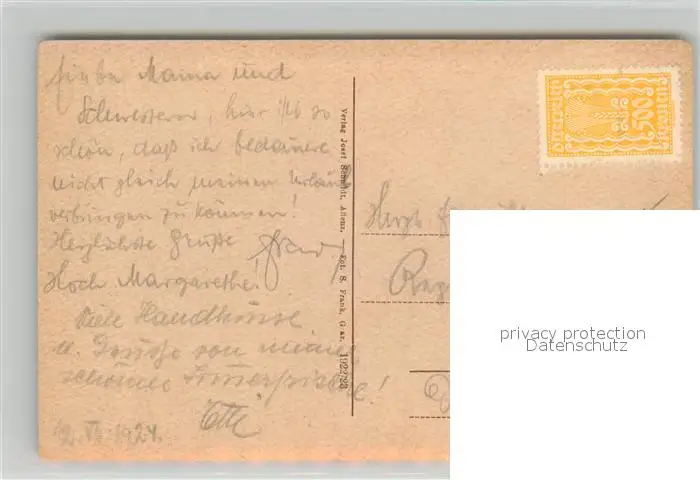 Liebe Mama und
Schwestern, hier ist so
schön, daß ich bedauere
nicht gleich meinen Urlaub
verbringen zu können!
Herzlichste Grüße
Hoch Margarethe!
Viele Handküsse
u. Grüße von meiner
schönen
12. VI. 1924.
Verlag Josef Schmidt, Aflenz. — Fot. S. Frank, Graz. 1922/23
500
privacy protection
Datenschutz